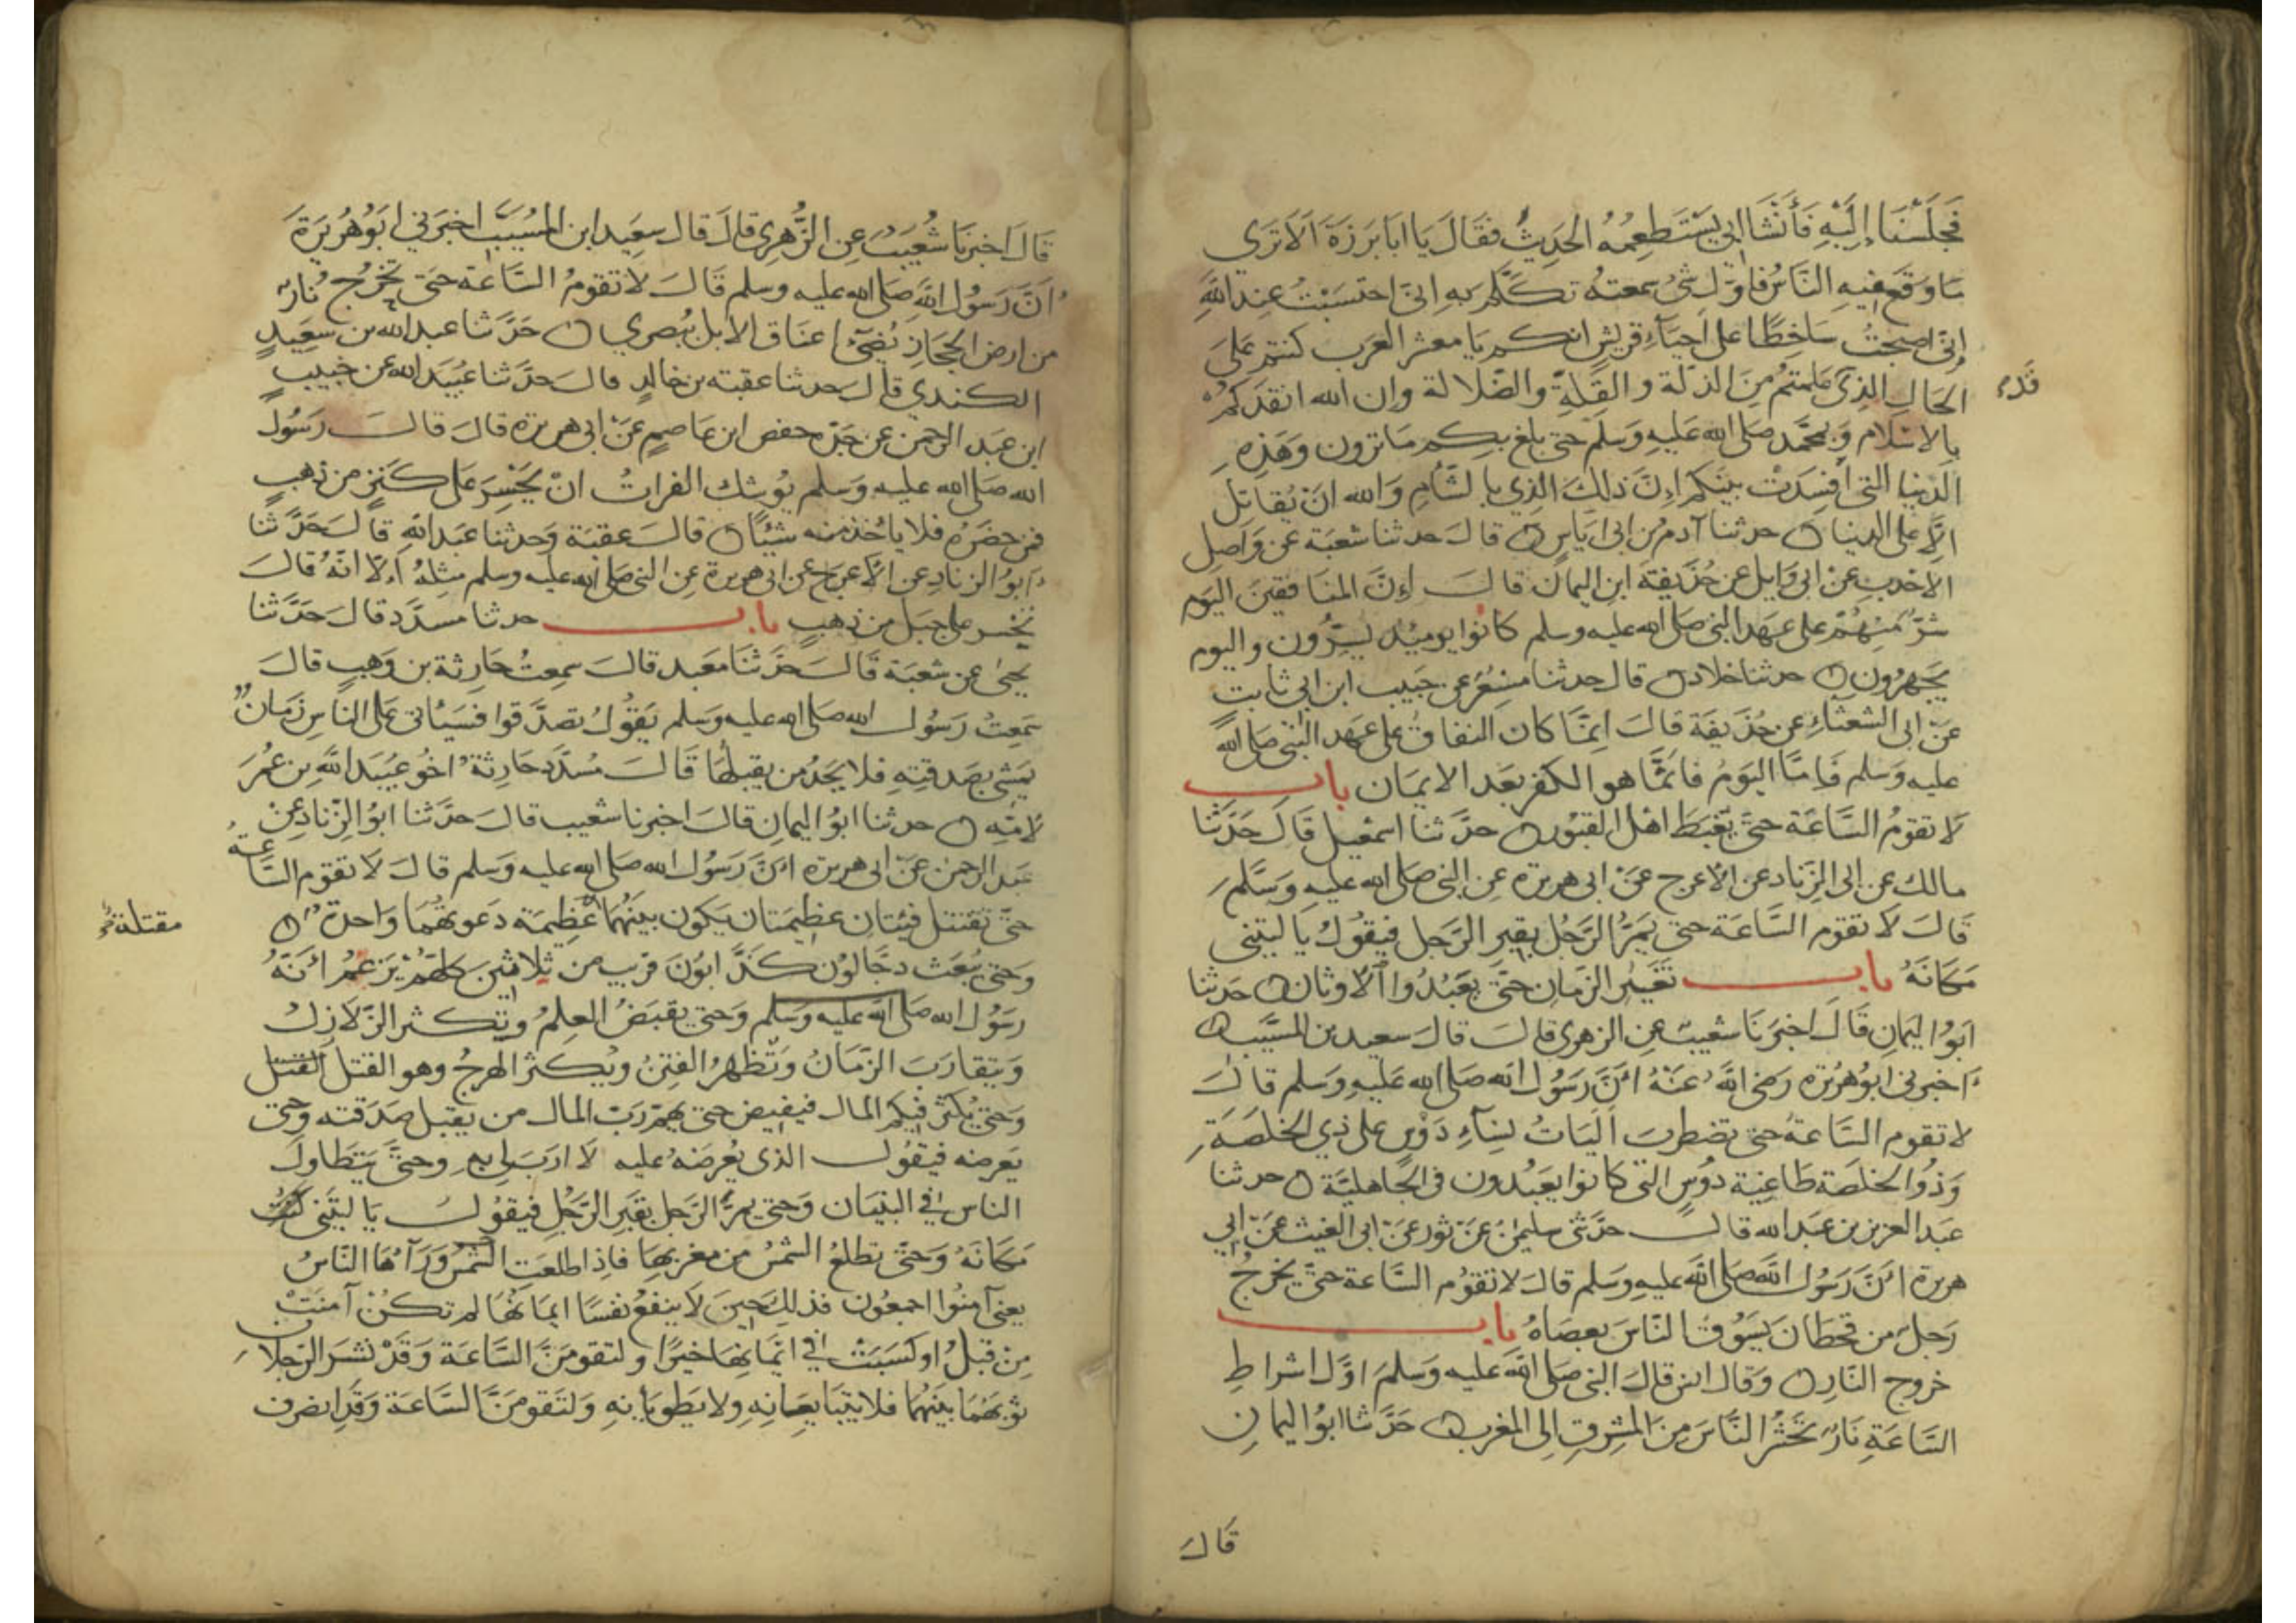 فَجَلَسْنَا إِلَيْهِ فَأَنْشَا ابي يَسْتَطعِمُهُ الحَدِيثُ فقَالَ يَا ابَا بَرزَةَ اَلَا تَرَى
مَا وَقَعَ فيهِ النَّاسُ فاوّل شئ سمعتهُ تكَلَّم بهِ انّى احتسَبْتُ عِند اللهِ
انّى اصبحتُ سَاخِطًا على احيَاءِ قريشٍ انكم يَا معشر العَرَب كنتم عَلىَ
الحَالِ الذِي علمتمُ مِنَ الذِلّة والقِلةِ والضّلالة وان الله انقذَكمُ
قدم
بالاسْلام وَبمحَّمد صَلى الله عَليهِ وَسَلّم حتى بلغ بِكم مَا ترون وَهَذِهِ
الدنيا التى اَفسدَتْ بينكم اِنّ ذلكَ الذِي بالشّامِ وَالله انْ يُقاتل
اِلَّا على الدنيا حدثنا آدم بن ابى اياسٍ قالَ حدثنا شعبَة عن وَاصِلِ
الاحدبِ عَنْ ابى وَايل عن حُذَيفَةَ ابن اليمان قالَ إنّ المنَافقينَ اليَوم
شَرٌّ مِنهُمْ على عهَد النبى صَلى الله عليه وسلم كانُوا يوميذٍ يسِرُّون واليوم
يَجهَرُون حدثنا خلاد قال حدثنا مِسْعَرٌ عن حَبيب ابن ابى ثابت
عَنْ ابى الشعثاءِ عن حُذَيفَة قالَ انِمَّا كان النفاق على عهَد النبى صَلى الله
عليه وَسلم فَامّا اليَوم فانّما هو الكفر بعَد الايمَان باب
لَا تقومُ السَّاعَة حتى يُغبَطَ اهْل القبُور حدَّثنا اسمعيل قَالَ حَدَّثنَا
مالك عن ابى الزِناد عن الاعرج عَنْ ابى هريرة عن النبى صَلى الله عليهِ وَسَّلمَ
قَالَ لَا تقوم السَّاعَة حتى يَمرّ الرَّجُل بقبرِ الرّجل فيقُولُ يَا ليتنى
مَكَانَهُ باب تغيير الزمانِ حتّى يَعْبُدُوا الاوثان حَدثنا
ابوُا اليمَانِ قَالَ اخبرَنَا شعَيبٌ عِن الزهرى قالَ قالَ سعيد بن المسيَّب
اَخبرنى ابوُهُريرة رضى اللهُ عَنْهُ انَّ رَسُولَ الله صَلى الله عَليهِ وَسَلم قالَ
لَا تقوم السّاعةُ حتى تضطرب اليَاتُ نِسَاءِ دَوْسٍ على ذي الخلَصَةِ
وَذُوا الخلصَة طَاغيَة دوُسٍ التى كانوا يعَبُدون فى الجَاهليَّة حدثنا
عبَد العزيز بن عَبد الله قالَ حدَّثنى سليمٰنُ عَنْ ثورٍ عَن ابى الغيث عَنْ ابى
هريرة انَّ رَسُولَ الله صَلى الله عَليهِ وسَلم قالَ لَا تقوُم السَّاعة حتّى يخرجُ
رَجلٌ من قحطَانَ يسَوُق النَّاسَ بعصَاهُ باب
خروج النّارِ وَقال انس قالَ النبى صَلى الله عَليه وَسَلّمَ اوّل اشراطِ
السَّاعَةِ نَارٌ تَحشرُ النَّاسَ مِنَ المشرِقِ الى المَغرب حَدَّثنا ابوُا اليمَانِ
قَالَ
قَالَ اخبرنَا شُعَيبٌ عِن الزُّهرِي قالَ قال سعِيد ابن المسُيَّب اخبرَني ابَوُهُرَيرَةَ
اَنَّ رَسُولَ الله صَلى الله عليه وسلم قَالَ لا تقومُ السَّاعَة حتى تخرُج نَارٌ
من ارض الحجَازِ تُضَيُّ اعنَاق الابل ببُصرِي حَدَّثنا عبد الله بن سَعِيدٍ
الكندي قالَ حدثنا عقبَة بن خالدٍ قالَ حدَّثنا عُبَيد الله عن خبيبٍ
ابن عَبَد الرحمن عن جدّه حفص ابن عَاصِمٍ عَنْ ابى هريرة قالَ قالَ رَسُولُ
الله صَلى الله عليهِ وَسَلم يُوشك الفراتُ انْ يَحْسِرَ عَلى كنَزٍ من ذهبٍ
فمن حضَرَهُ فلا يأخذ منه شيئًا قالَ عقبَة وَحدثنا عُبَيد اللهِ قالَ حَدَّثنا
اَبوُا الزِنادِ عن الاَعرج عن ابى هريرة عِن النبى صَلى الله عليه وسلم مثلهُ اِلّا انّهُ قالَ
يَحْسر على جَبَل من ذهبٍ باب حدثنا مسدّد قال حَدّثنا
يحيى عن شعبَة قالَ حَدّثنَا مَعبد قالَ سمِعتُ حَارِثة بن وَهبٍ قالَ
سَمِعتُ رَسُولَ الله صَلى الله عليهِ وَسَلم يَقوُلُ تصدَّقوا فسَيأتى عَلى النّاسِ زَمَانٌ
يَمشى بصَدقتِهِ فلا يَجدُ من يقبلهُا قَالَ مُسَدّد حَارِثة اخُو عبَيَد الله بن عُمَرَ
لامّهِ حدثنا ابوُا اليمانِ قالَ اخبرنا شعَيب قالَ حَدّثنا ابوُا الزّنادِ عَنْ
عَبد الرحمن عَنْ ابى هريرة انَّ رَسُول الله صَلى الله عليه وَسلم قالَ لَا تقوم السَّاعَةُ
حتّى تقتتل فيئتانِ عظيمَتان يَكون بينهُما عظِيمَة دَعوتهُما وَاحدة
مقتلة
وَحتى يُبعَث دجّالوُن كذّابوُنَ قريب من ثلاثينَ كلهُمْ يَزعُمُ انّهُ
رسَوُل الله صَلى الله عليهِ وَسَلم وَحتى يقبَضُ العِلمُ وتكثر الزّلازلُ
وَيتقارَبَ الزّمَانُ وَتَظهرُ الفِتنُ ويُكثر الهرجُ وهو القتل القتل
وَحتى يُكثرَ فيكم المال فيفيض حتى يهمّ رَبَ المال من يقبل صَدَقته وَحتى
يَعرضه فيقُول الذى يُعرضَهُ عليه لَا ارَبَ لى بهِ وحتىَّ يتَطَاولَ
الناس في البنيَان وَحتى يمرّ الرّجل بقَبِر الرّجُلِ فيقوُلُ يَا ليتَنى كنتُ
مَكَانَهُ وَحتّى تطلعُ الشمسُ من مغربهَا فاذِا طلعَت الشمْسُ وَرَآهَا النّاسُ
يعنى آمنُوا اجمعُون فذلِكَ حِينَ لَا ينفعُ نفسًا ايمَانُهَا لم تكنْ آمنَتْ
مِن قبلُ او كسَبَتْ في ايْمانِهَا خيرًا ولتقومَنَّ السَّاعَة وَقَدْ نشَرَ الرّجلانِ
ثوبَهُمَا بينَهُما فلا يتبَايعَانِهِ ولا يَطوِيَانِهِ وَلتَقومَنَّ السَّاعَة وَقَدِ انصَرف